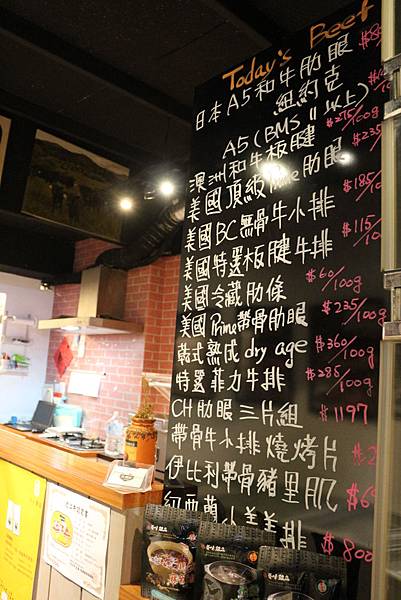 Today's Beef
日本A5和牛肋眼
紐約克
A5(BMS 11以上) $275/100g
澳洲和牛板腱 $235
美國頂級Prime肋眼
美國BC無骨牛小排 $185/10
美國特選板腱牛排 $115/10
美國冷藏肋條 $60/100g
美國Prime帶骨肋眼 $235/100g
乾式熟成dry age $360/100g
特選菲力牛排 $285/100g
CH肋眼三片組 $1197
帶骨牛小排燒烤片 $2
伊比利帶骨豬里肌 $6
紐西蘭小羊排 $800